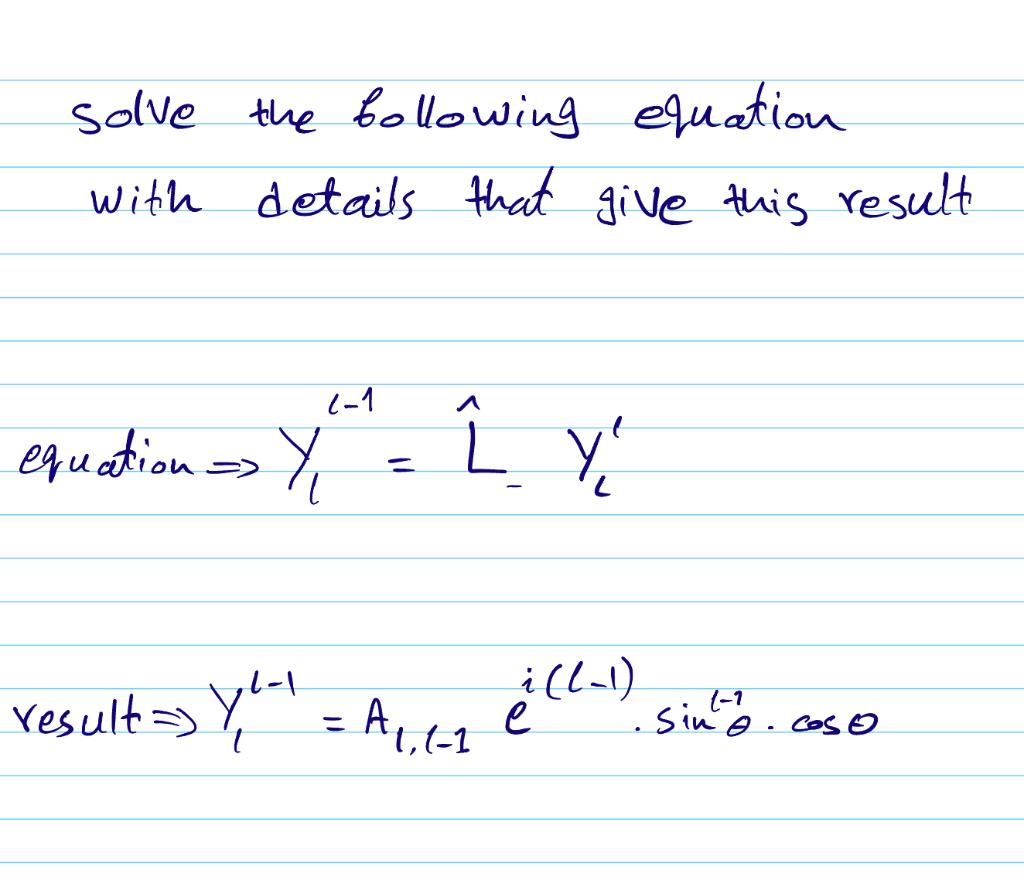 solve the following equation
with details that give this result
equation => Y_l^{l-1} = L̂_- Y_l^l
result => Y_l^{l-1} = A_{l,l-1} e^{i(l-1)} . sin^{l-1}θ . cosθ